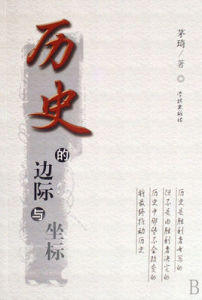 历史
的
边际
与
坐标
茅琦/著
学林出版社
历史是胜利者书写的
但不是由胜利者决定的
历史中那些不会改变的
将最终推动历史
B